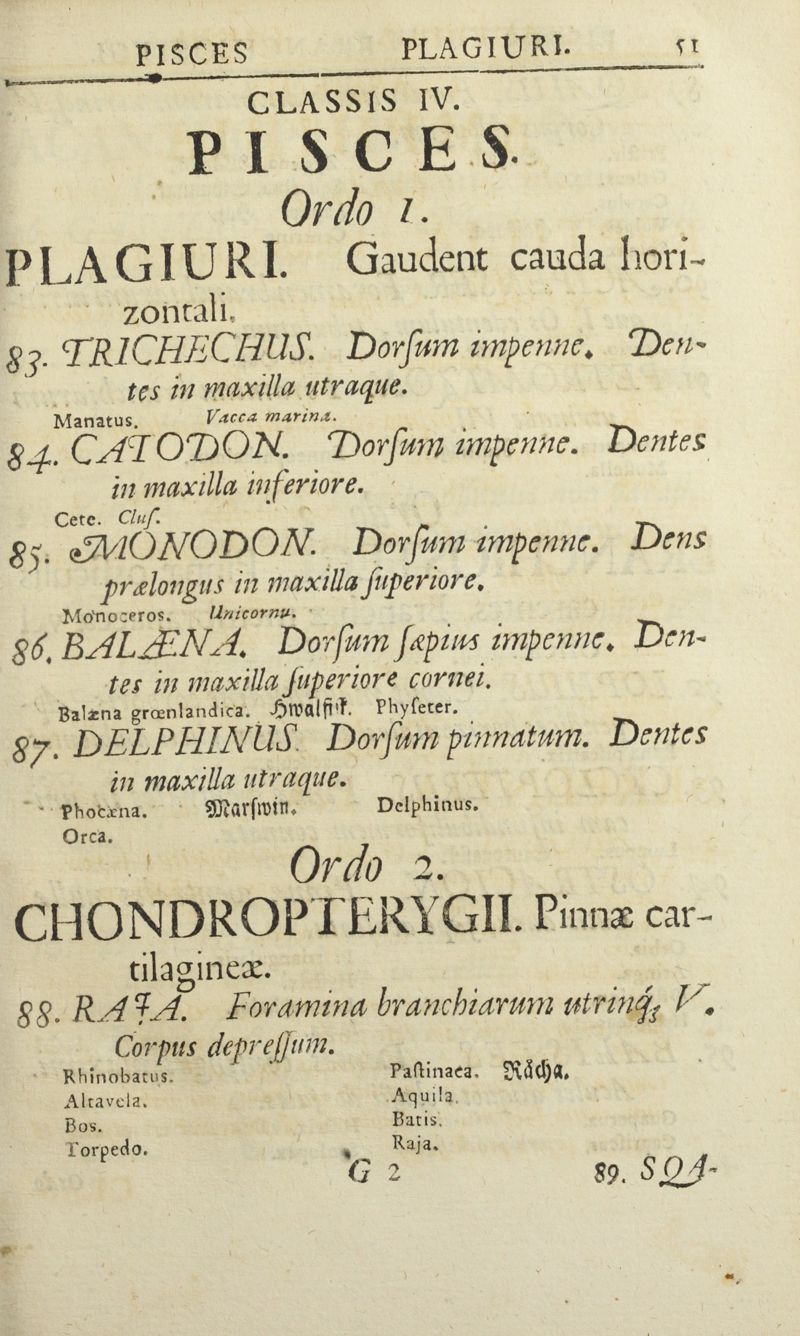 PISCES PLAGIURI. 51
CLASSIS IV.
PISCES.
Ordo 1.
PLAGIURI. Gaudent cauda hori-
zontali.
83. TRICHECHUS. Dorſum impenne. Den-
tes in maxilla utraque.
Manatus. Vacca marina.
84. CATODON. Dorſum impenne. Dentes
in maxilla inferiore.
Cete. Cluſ.
85. MONODON. Dorſum impenne. Dens
prælongus in maxilla ſuperiore.
Monoceros. Unicornu.
86. BALÆNA. Dorſum ſæpius impenne. Den-
tes in maxilla ſuperiore cornei.
Balæna grœnlandica. Hwalfiſk. Phyſeter.
87. DELPHINUS. Dorſum pinnatum. Dentes
in maxilla utraque.
Phocæna. Marſwin. Delphinus.
Orca.
Ordo 2.
CHONDROPTERYGII. Pinnæ car-
tilagineæ.
88. RAJA. Foramina branchiarum utrinq; V.
Corpus depreſſum.
Rhinobatus. Paſtinaca. Råcha.
Altavela. Aquila.
Bos. Batis.
Torpedo. Raja.
G 2 89. SQA-